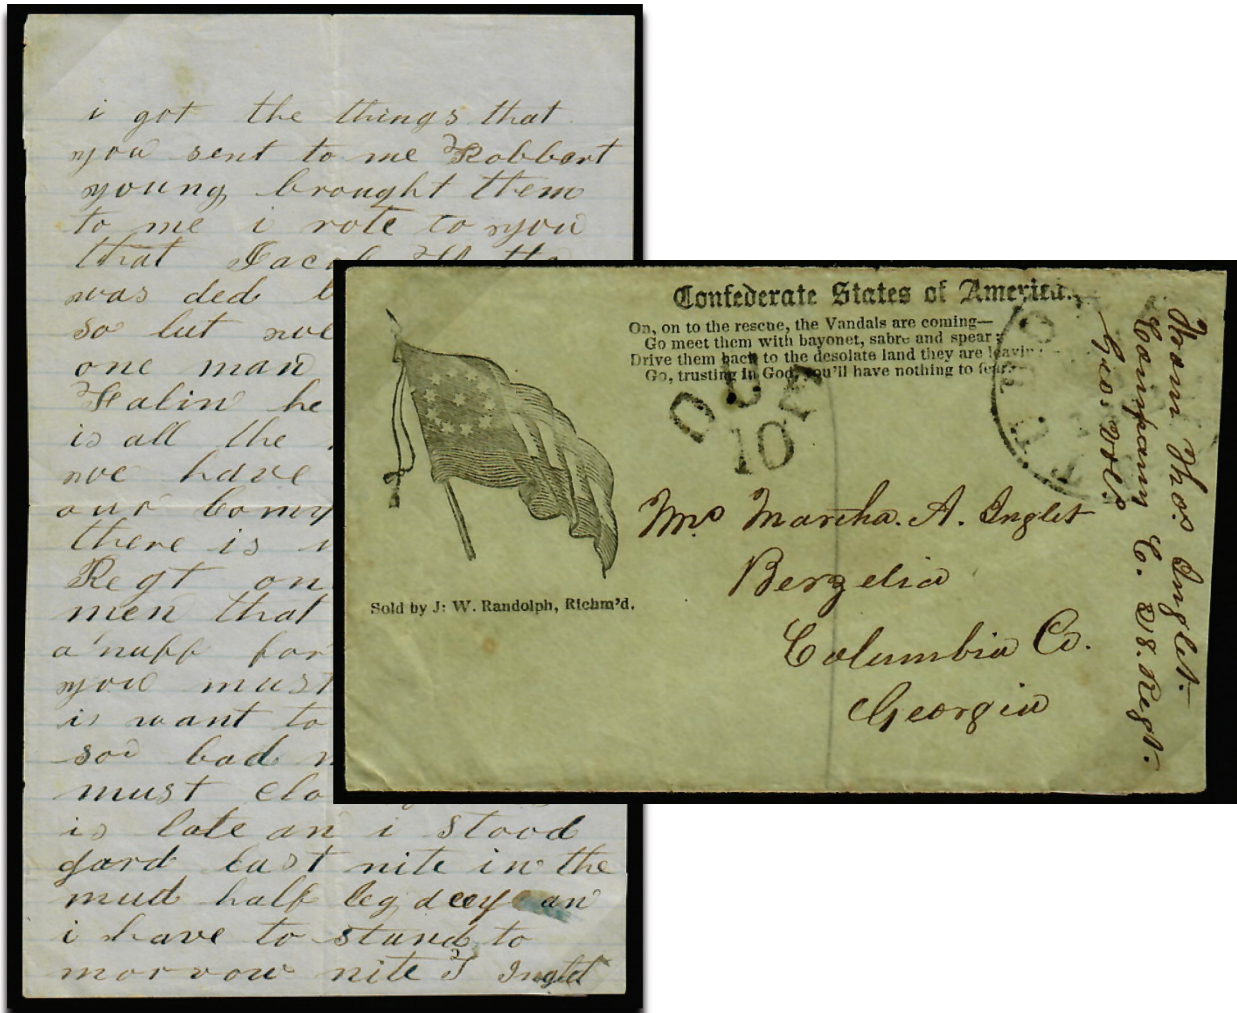 i got the things that
you sent to me Robbart
young brought them
to me i rote to you
that Jacob
was ded
so but we
one man
Falin he
is all the
we have
our Comp
there is
Regt on
men that
a nuff for
you must
is want to
so bad
must clo
is late an i stood
gard last nite in the
mud half leg deep an
i have to stand to
morrow nite T Inglet
Confederate States of America.
On, on to the rescue, the Vandals are coming—
Go meet them with bayonet, sabre and spear;
Drive them back to the desolate land they are leaving
Go, trusting in God, you'll have nothing to fear.
DUE
10
Sold by J: W. Randolph, Richm'd.
Mrs Martha. A. Inglet
Berzelia
Columbia Co.
Georgia
From Thos Inglet.
Company C. 28. Regt.
Gi Vols